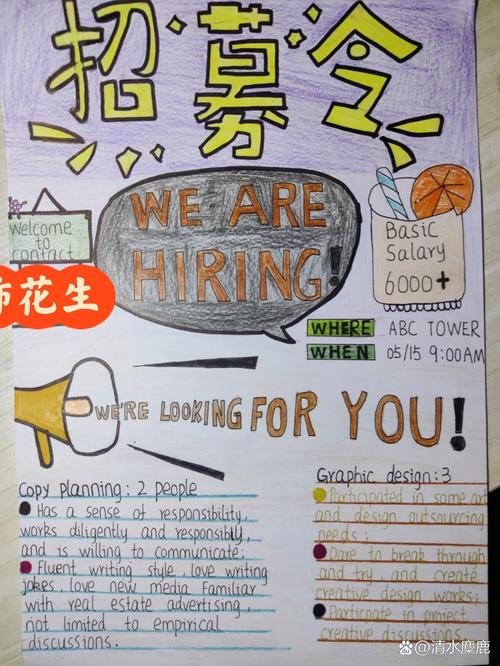 招募令
WE ARE
HIRING!
Welcome
to
contact
花生
Basic
Salary
6000+
WHERE ABC TOWER
WHEN 05/15 9:00AM
WE'RE LOOKING FOR YOU!
Copy planning: 2 people
Has a sense of responsibility,
works diligently and responsibly,
and is willing to communicate;
Fluent writing style, love writing
jokes, love new media Familiar
with real estate advertising,
not limited to empirical
discussions.
Graphic design:3
Participated in some art
and design outsourcing
needs;
Dare to break through
and try and create
creative design works;
Participate in project
creative discussions.
@清水麋鹿